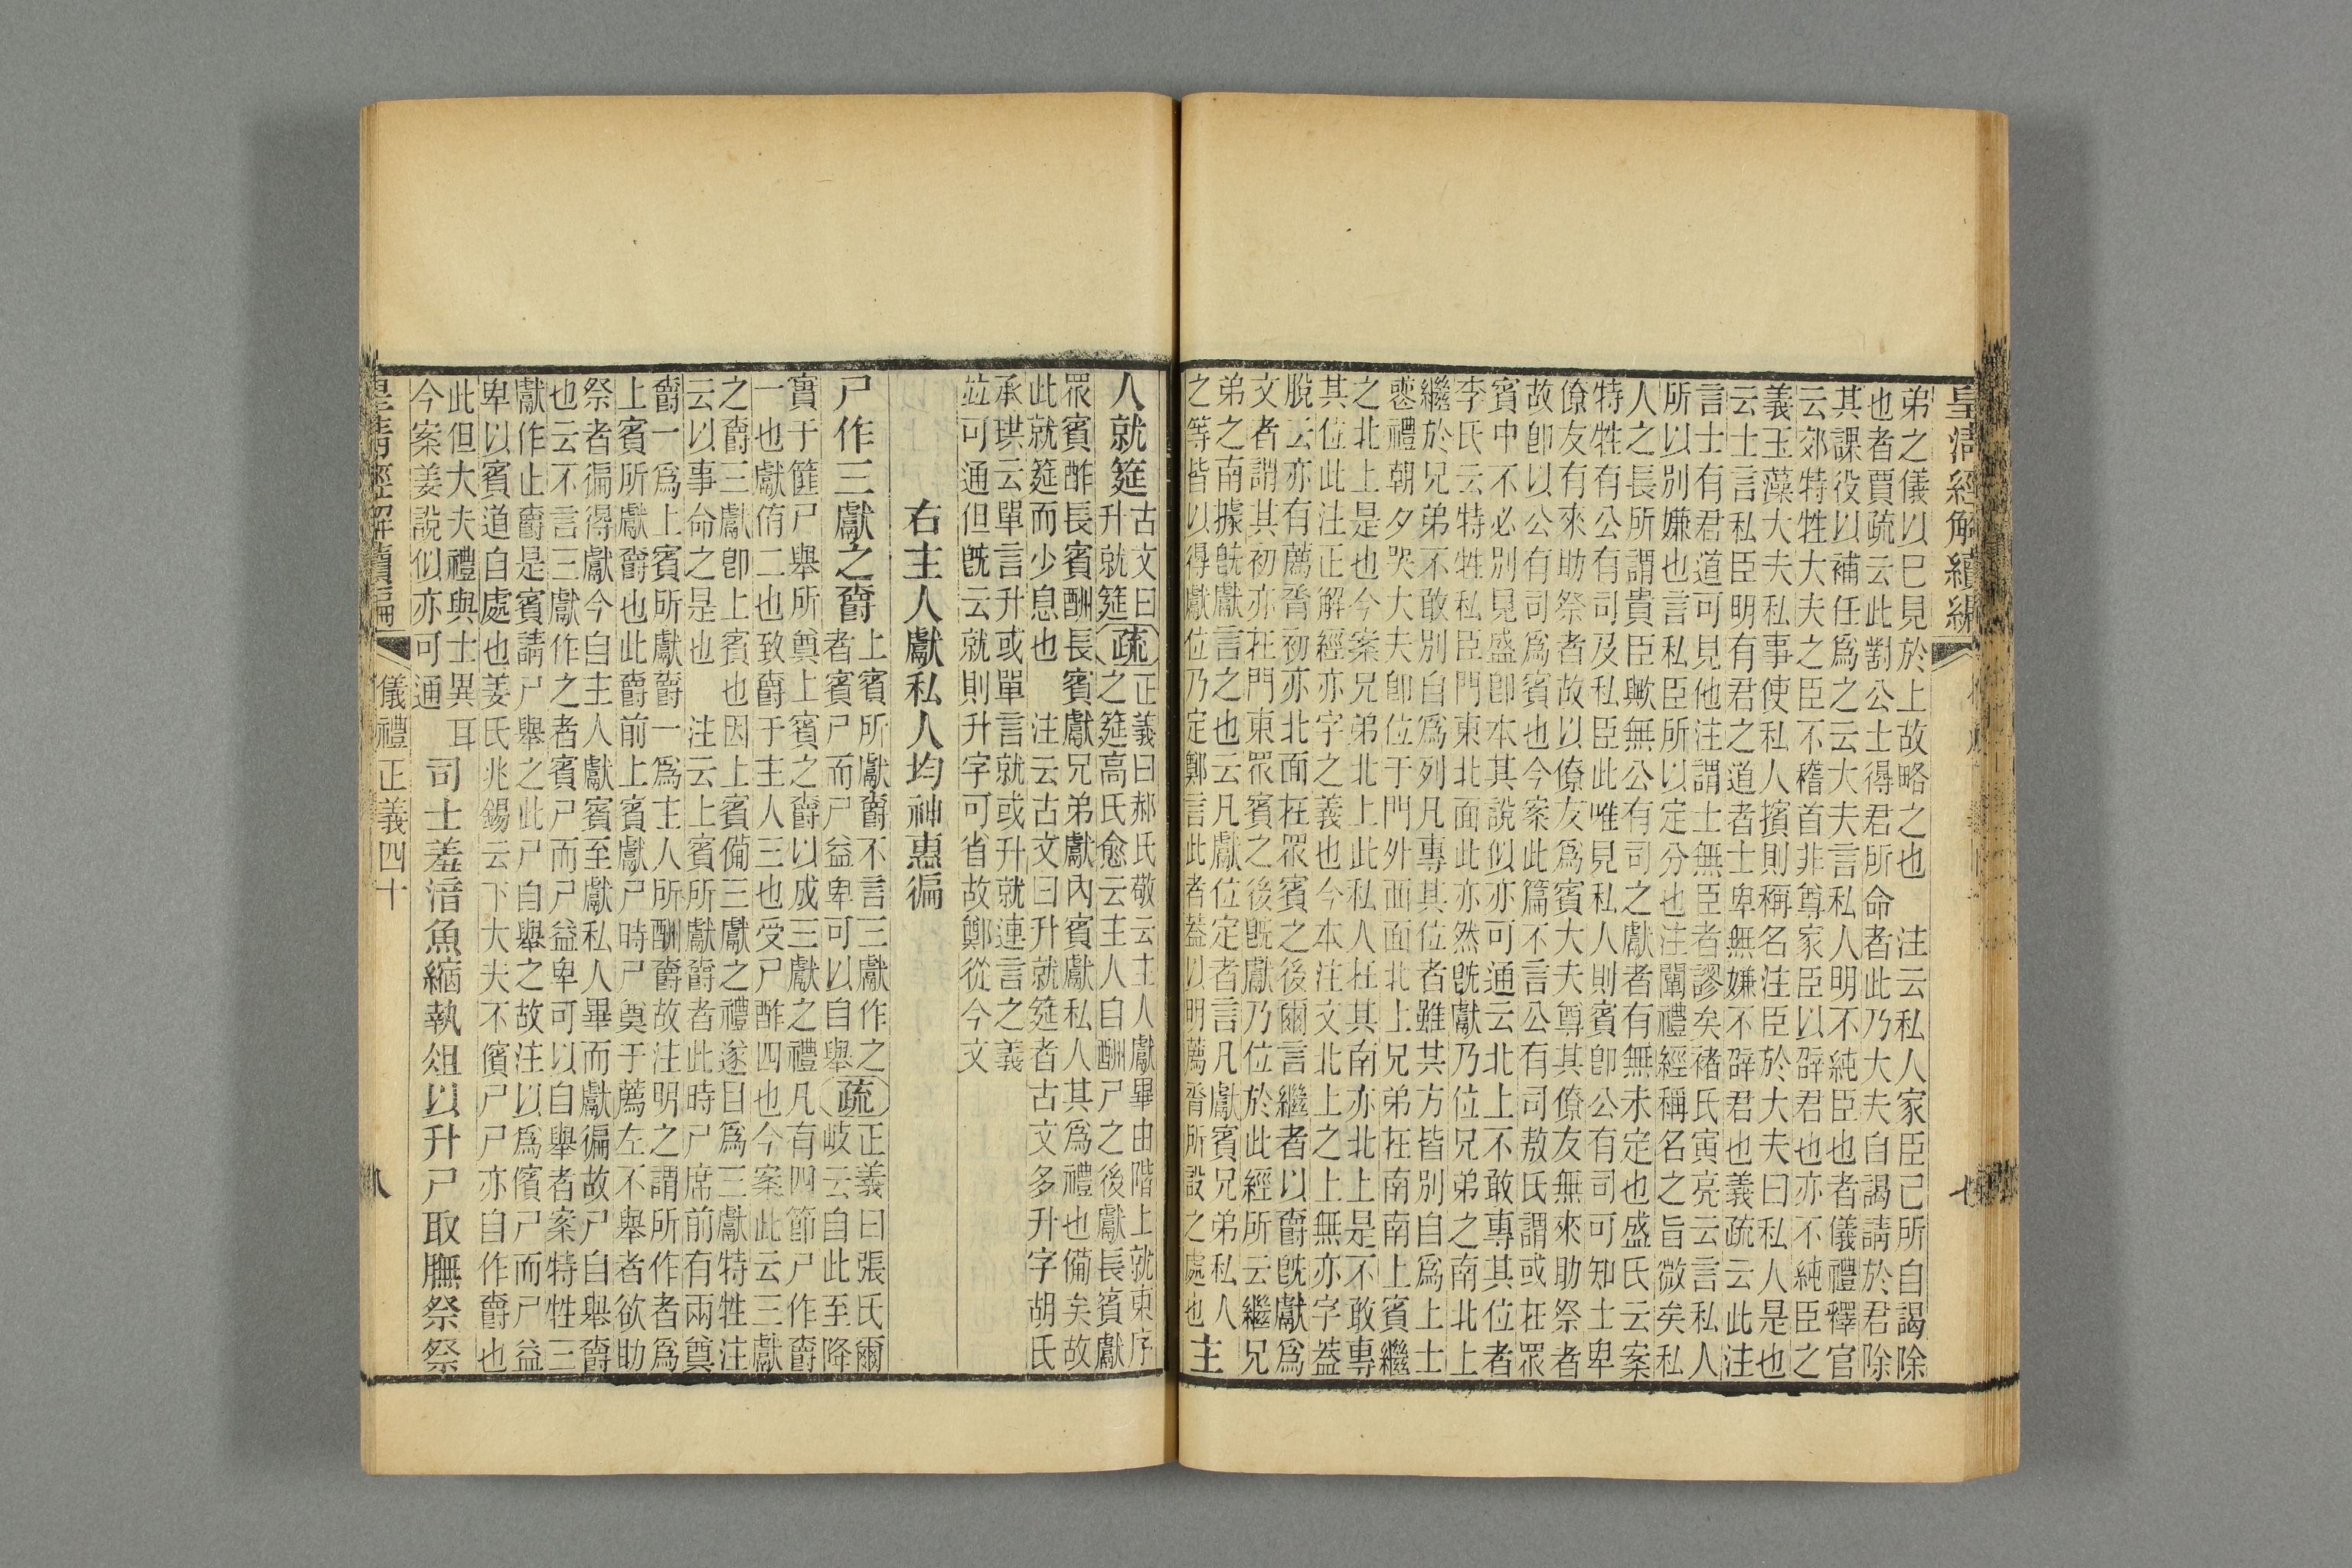 皇清經解續編
弟之儀以巳見於上故略之也　注云私人家臣己所自謁除
也者賈疏云此對公士得君所命者此乃大夫自謁請於君除
其課役以補任爲之云大夫言私人明不純臣也者儀禮釋官
云郊特牲大夫之臣不稽首非尊家臣以辟君也亦不純臣之
義玉藻大夫私事使私人擯則稱名注臣於大夫曰私人是也
云士言私臣明有君之道者士卑無嫌不辟君也義疏云此注
言士有君道可見他注謂士無臣者謬矣褚氏寅亮云言私人
所以別嫌也言私臣所以定分也注闡禮經稱名之旨微矣私
人之長所謂貴臣歟無公有司之獻者有無未定也盛氏云案
特牲有公有司及私臣此唯見私人則賓卽公有司可知士卑
僚友有來助祭者故以僚友爲賓大夫尊其僚友無來助祭者
故卽以公有司爲賓也今案此篇不言公有司敖氏謂或在眾
賓中不必別見盛卽本其說似亦可通云北上不敢專其位者
李氏云特牲私臣門東北面此亦然旣獻乃位兄弟之南北上
繼於兄弟不敢別自爲列凡專其位者雖其方皆別自爲上士
喪禮朝夕哭大夫卽位于門外西面北上兄弟在南南上賓繼
之北上是也今案兄弟北上此私人在其南亦北上是不敢專
其位此注正解經亦字之義也今本注文北上之上無亦字葢
脫云亦有薦脀初亦北面在眾賓之後爾言繼者以爵旣獻爲
文者謂其初亦在門東眾賓之後旣獻乃位於此經所云繼兄
弟之南據旣獻言之也云凡獻位定者言凡獻賓兄弟私人
之等皆以得獻位乃定鄭言此者葢以明薦脀所設之處也主
人就筵古文曰升就筵疏正義曰郝氏敬云主人獻畢由階上就東序
之筵高氏愈云主人自酬尸之後獻長賓獻
眾賓酢長賓酬長賓獻兄弟獻內賓獻私人其爲禮也備矣故
此就筵而少息也　注云古文曰升就筵者古文多升字胡氏
承珙云單言升或單言就或升就連言之義
竝可通但旣云就則升字可省故鄭從今文
右主人獻私人均神惠徧
尸作三獻之爵上賓所獻爵不言三獻作之者賓尸而尸益卑可以自舉疏正義曰張氏爾
岐云自此至降
實于篚尸舉所奠上賓之爵以成三獻之禮凡有四節尸作爵
一也獻侑二也致爵于主人三也受尸酢四也今案此云三獻
之爵三獻卽上賓也因上賓備三獻之禮遂目爲三獻特牲注
云以事命之是也　注云上賓所獻爵者此時尸席前有兩奠
爵一爲上賓所獻爵一爲主人所酬爵故注明之謂所作者爲
上賓所獻爵也此爵前上賓獻尸時尸奠于薦左不舉者欲助
祭者徧得獻今自主人獻賓至獻私人畢而獻徧故尸自舉爵
也云不言三獻作之者賓尸而尸益卑可以自舉者案特牲三
獻作止爵是賓請尸舉之此尸自舉之故注以爲儐尸而尸益
卑以賓道自處也姜氏兆錫云下大夫不儐尸尸亦自作爵也
此但大夫禮與士異耳
今案姜說似亦可通司士羞湆魚縮執俎以升尸取膴祭祭
皇清經解續編　儀禮正義四十　八